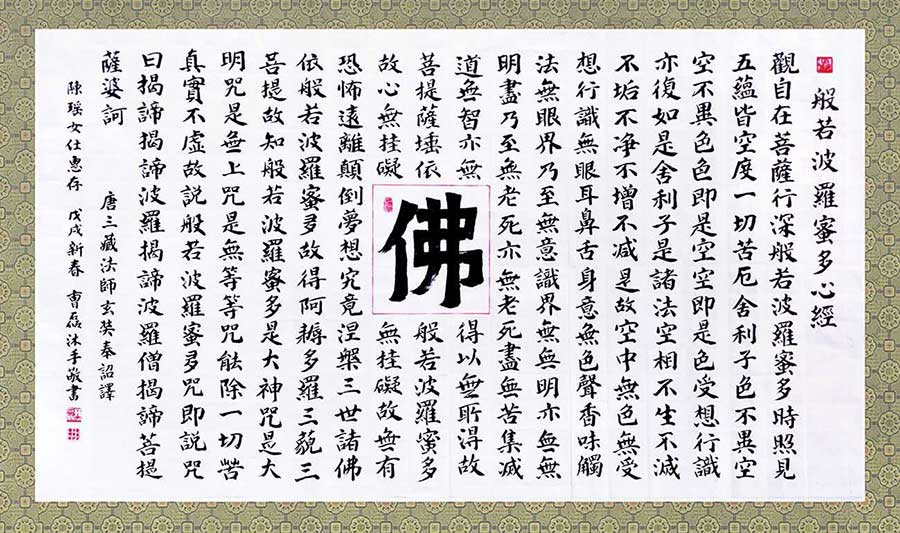 般若波羅蜜多心經
觀自在菩薩行深般若波羅蜜多時照見
五蘊皆空度一切苦厄舍利子色不異空
空不異色色即是空空即是色受想行識
亦復如是舍利子是諸法空相不生不滅
不垢不淨不增不減是故空中無色無受
想行識無眼耳鼻舌身意無色聲香味觸
法無眼界乃至無意識界無無明亦無無
明盡乃至無老死亦無老死盡無苦集滅
道無智亦無 得以無所得故
菩提薩埵依 般若波羅蜜多
故心無挂礙 無挂礙故無有
佛
恐怖遠離顛倒夢想究竟涅槃三世諸佛
依般若波羅蜜多故得阿耨多羅三藐三
菩提故知般若波羅蜜多是大神咒是大
明咒是無上咒是無等等咒能除一切苦
真實不虛故説般若波羅蜜多咒即説咒
曰揭諦揭諦波羅揭諦波羅僧揭諦菩提
薩婆訶 唐三藏法師玄奘奉詔譯
陳瑤女仕惠存 戊戌新春 曹磊沐手敬書